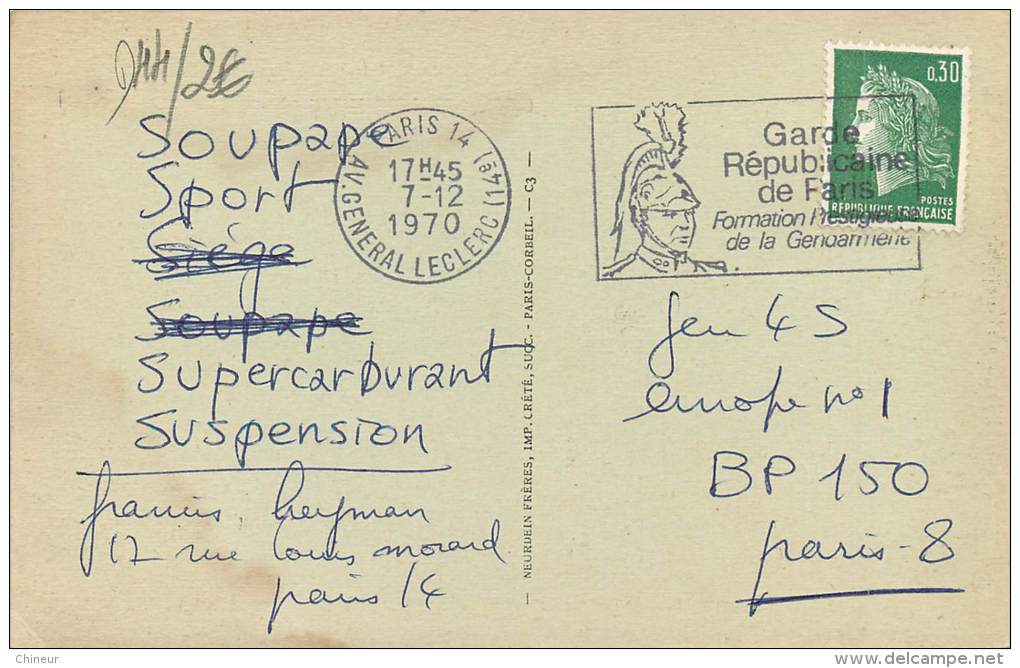 944/2€
Soupape
Sport
Siége
Soupape
Supercarburant
Suspension
francis heyman
17 rue Louis morard
paris 14
PARIS 14 (14e) AV. GENERAL LECLERC
17H45
7-12
1970
NEURDEIN FRÈRES, IMP. CRÉTÉ, SUCC. - PARIS-CORBEIL. - C3
Garde
Républicaine
de Paris
Formation Prestigieuse
de la Gendarmerie
0,30
POSTES
REPUBLIQUE FRANÇAISE
Jeu 4 S
europe no 1
BP 150
paris-8
Chineur
www.delcampe.net